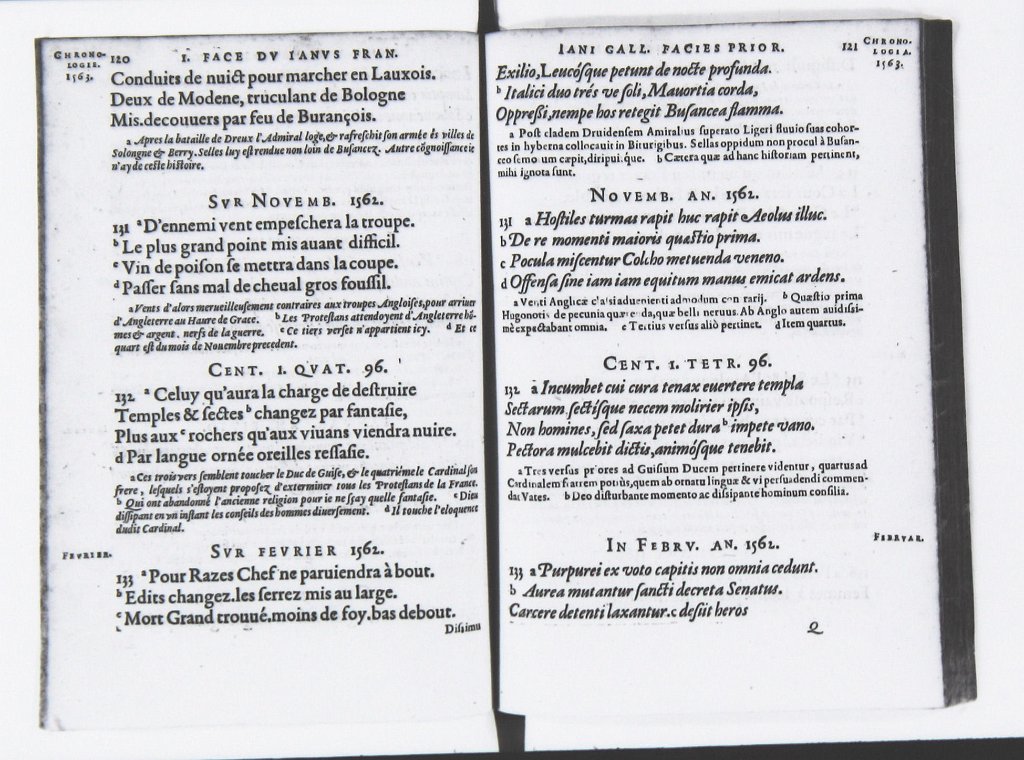 CHRONO-
LOGIE.
1563.
120
I. FACE DV IANVS FRAN.
Conduits de nuict pour marcher en Lauxois.
Deux de Modene, truculant de Bologne
Mis.decouuers par feu de Burançois.
a Apres la bataille de Dreux l'Admiral loge,& rafreschit son armée és villes de
Solongne & Berry. Selles luy est rendue non loin de Busancez. Autre cõgnoissance ie
n'ay de ceste histoire.
SVR NOVEMB. 1562.
131 ᵃD'ennemi vent empeschera la troupe.
ᵇ Le plus grand point mis auant difficil.
ᶜ Vin de poison se mettra dans la coupe.
ᵈ Passer sans mal de cheual gros foussil.
a Vents d'alors merueilleusement contraires aux troupes Angloises,pour arriuer
d'Angleterre au Haure de Grace. ᵇ Les Protestans attendoyent d'Angleterre hõ-
mes & argent. nerfs de la guerre. ᶜ Ce tiers verset n'appartient icy. ᵈ Et ce
quart est du mois de Nouembre precedent.
CENT. I. QVAT. 96.
132 ᵃ Celuy qu'aura la charge de destruire
Temples & sectes ᵇ changez par fantasie,
Plus aux ᶜ rochers qu'aux viuans viendra nuire.
d Par langue ornée oreilles ressasie.
a Ces trois vers semblent toucher le Duc de Guise, & le quatriéme le Cardinal son
frere, lesquels s'estoyent proposez d'exterminer tous les Protestans de la France.
ᵇ Qui ont abandonné l'ancienne religion pour ie ne sçay quelle fantasie. ᶜ Dieu
dissipant en vn instant les conseils des hommes diuersement. ᵈ Il touche l'eloquence
dudit Cardinal.
FEVRIER.
SVR FEVRIER 1562.
133 ᵃPour Razes Chef ne paruiendra à bout.
ᵇ Edits changez.les serrez mis au large.
ᶜ Mort Grand trouué.moins de foy.bas debout.
Dissimu
IANI GALL. FACIES PRIOR.
121
CHRONO-
LOGIA.
1563.
Exilio,Leucósque petunt de nocte profunda.
ᵇ Italici duo trés ve soli, Mauortia corda,
Oppressi,nempe hos retegit Busancea flamma.
a Post cladem Druidensem Amiralius superato Ligeri fluuio suas cohor-
tes in hyberna collocauit in Biturigibus. Sellas oppidum non procul à Busan-
ceo semotum cæpit,diripuitque. ᵇ Cætera quæ ad hanc historiam pertinent,
mihi ignota sunt.
NOVEMB. AN. 1562.
131 a Hostiles turmas rapit huc rapit Aeolus illuc.
b De re momenti maioris quæstio prima.
c Pocula miscentur Colcho metuenda veneno.
d Offensa sine iam iam equitum manus emicat ardens.
a Venti Anglicæ classi aduenienti admodum contrarij. ᵇ Quæstio prima
Hugonotis de pecunia quærenda,quæ belli neruus. Ab Anglo autem auidissi-
mè expectabant omnia. c Tertius versus aliò pertinet. d Item quartus.
CENT. I. TETR. 96.
132 a Incumbet cui cura tenax euertere templa
Sectarum,sectisque necem molirier ipsis,
Non homines, sed saxa petet dura ᵇ impete vano.
Pectora mulcebit dictis,animósque tenebit.
a Tres versus priores ad Guisium Ducem pertinere videntur, quartus ad
Cardinalem fratrem potiùs,quem ab ornatu linguæ & vi persuadendi commen-
dat Vates. b Deo disturbante momento ac dissipante hominum consilia.
FEBRVAR.
IN FEBRV. AN. 1562.
133 a Purpurei ex voto capitis non omnia cedunt.
b Aurea mutantur sancti decreta Senatus.
Carcere detenti laxantur.c desiit heros
Q